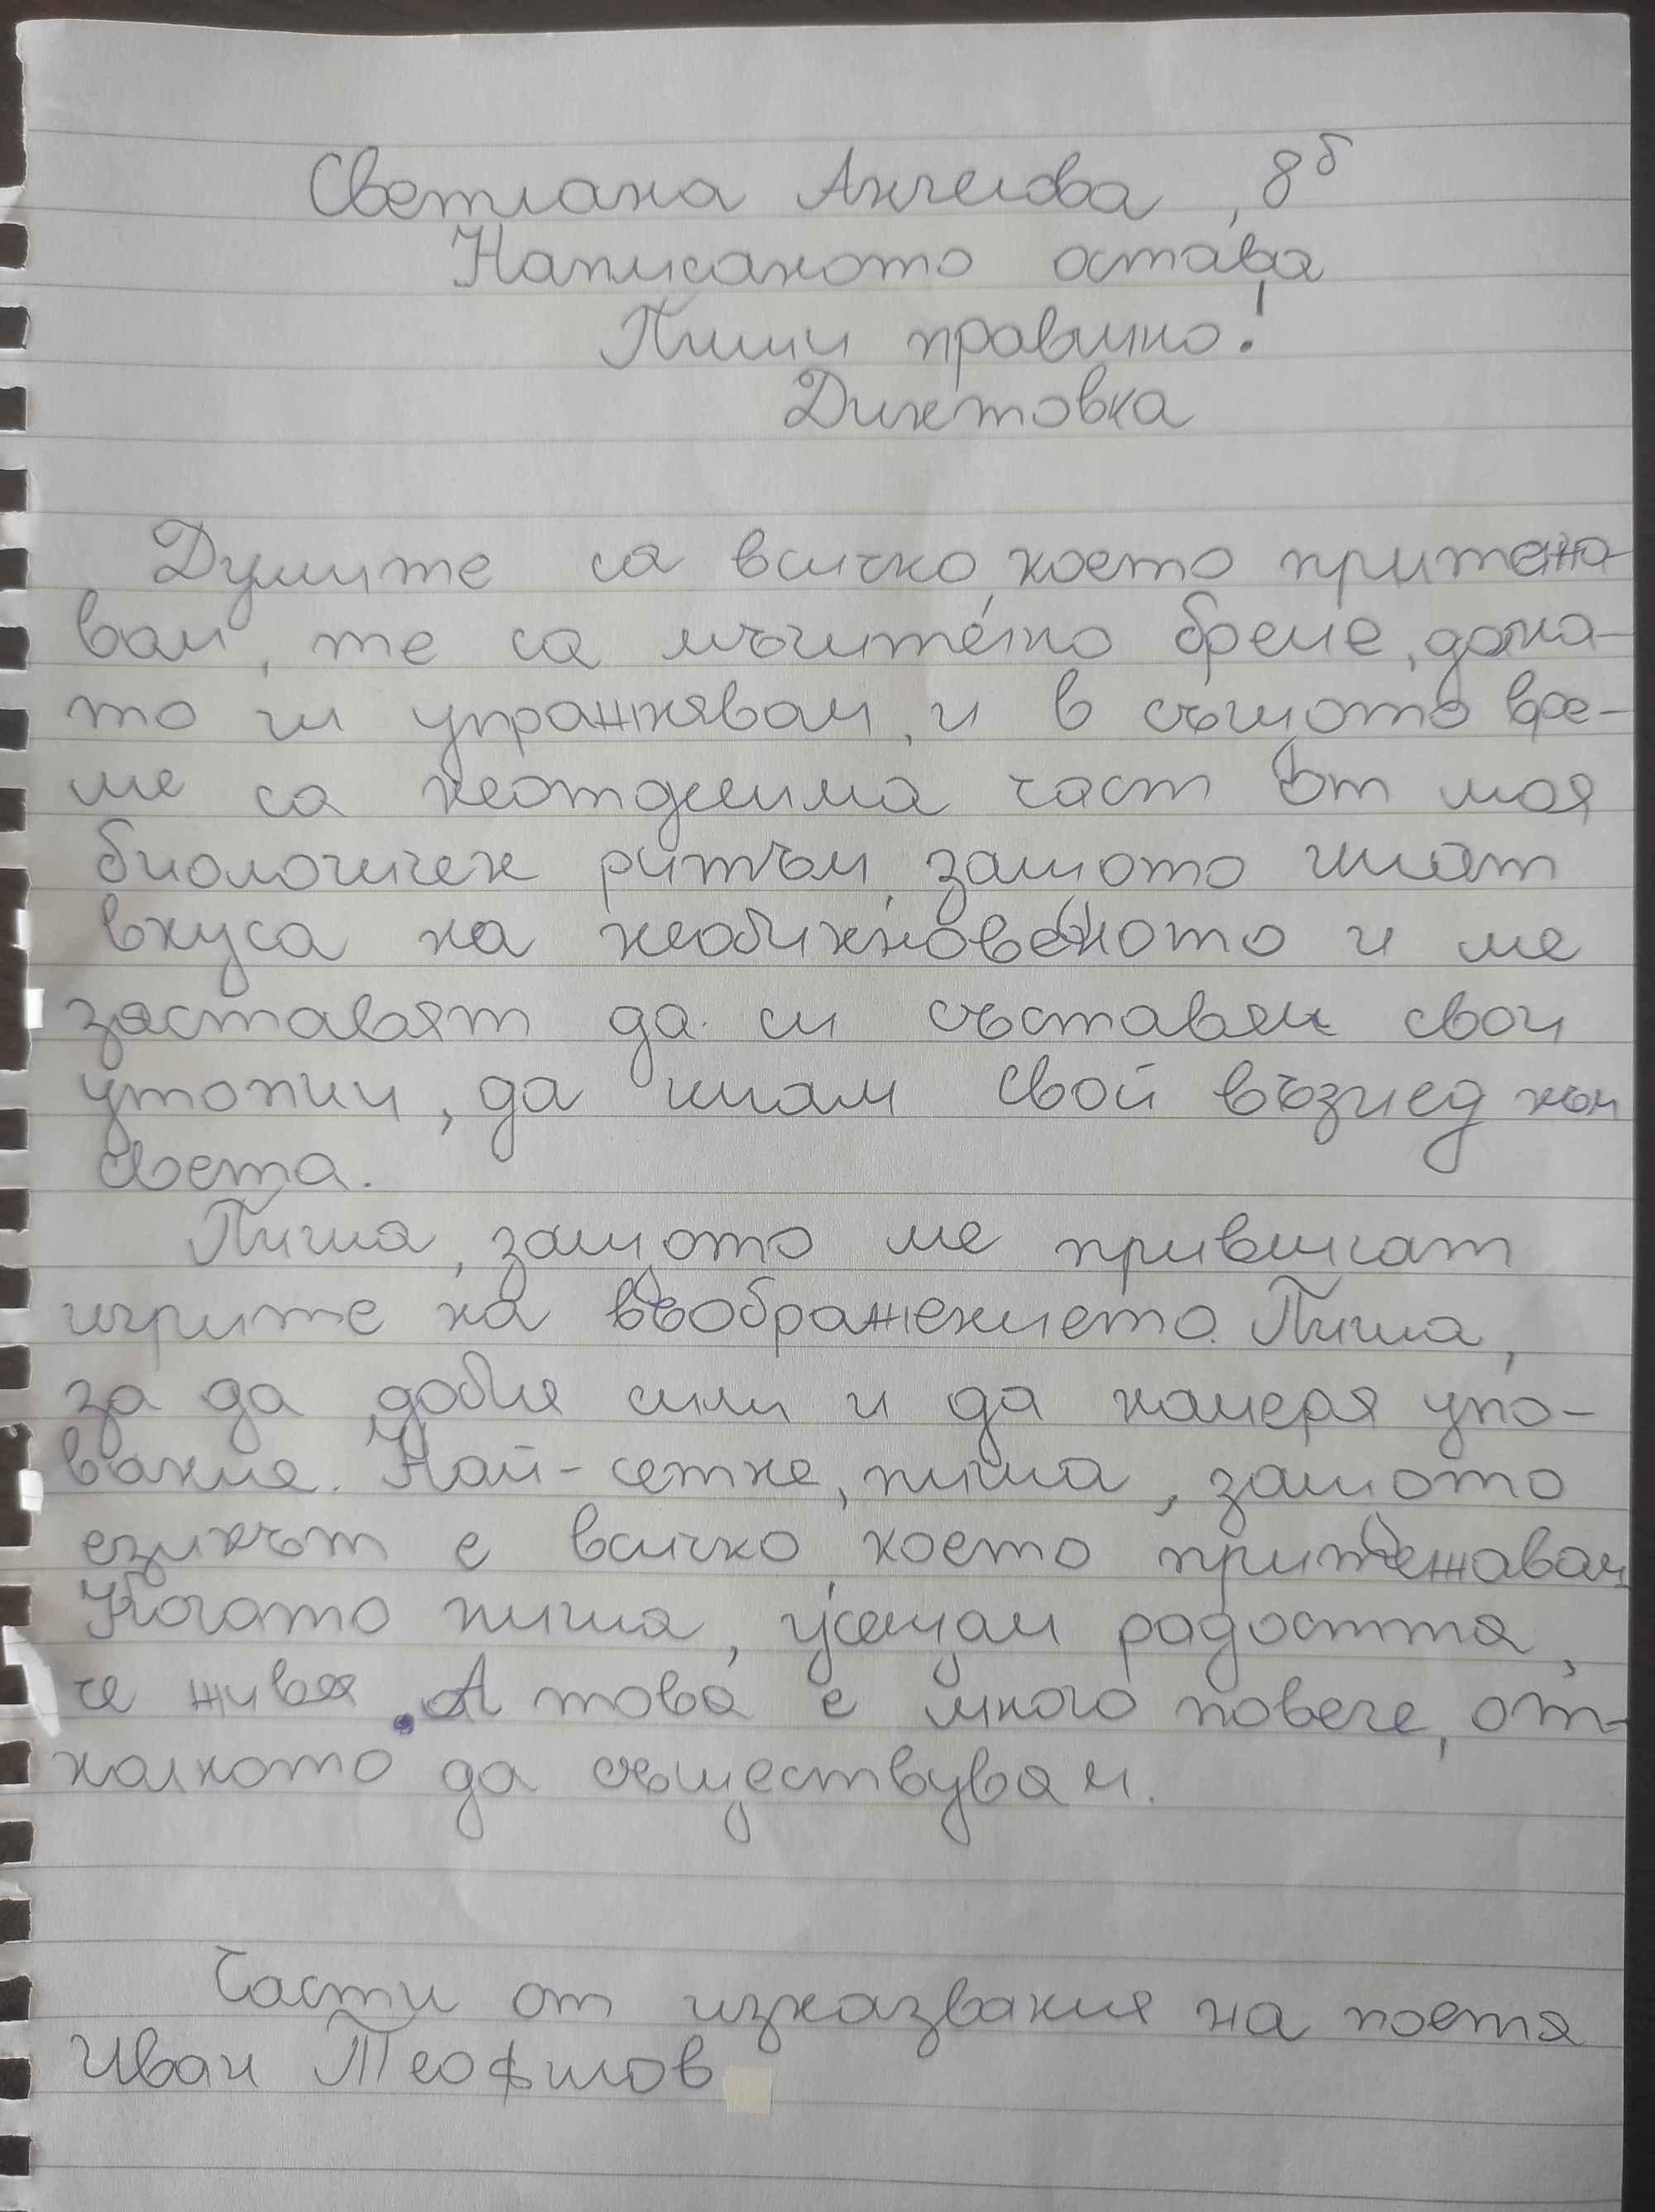 Светлана Ангелова, 8б
Написаното остава
Пиши правилно!
Диктовка
Думите са всичко, което притежа-
вам, те са мъчително бреме, дока-
то ги упражнявам, и в същото вре-
ме са неотделима част от моя
биологичен ритъм, защото имат
вкуса на необикновеното и ме
заставят да си съставям свои
утопии, да имам свой възглед към
света.
Пиша, защото ме привличат
игрите на въображението. Пиша,
за да добия сили и да намеря упо-
вание. Най-сетне, пиша, защото
езикът е всичко, което притежавам.
Когато пиша, усещам радостта,
че живея. А това е много повече, от-
колкото да съществувам.
Части от изказвания на поета
Иван Теофилов